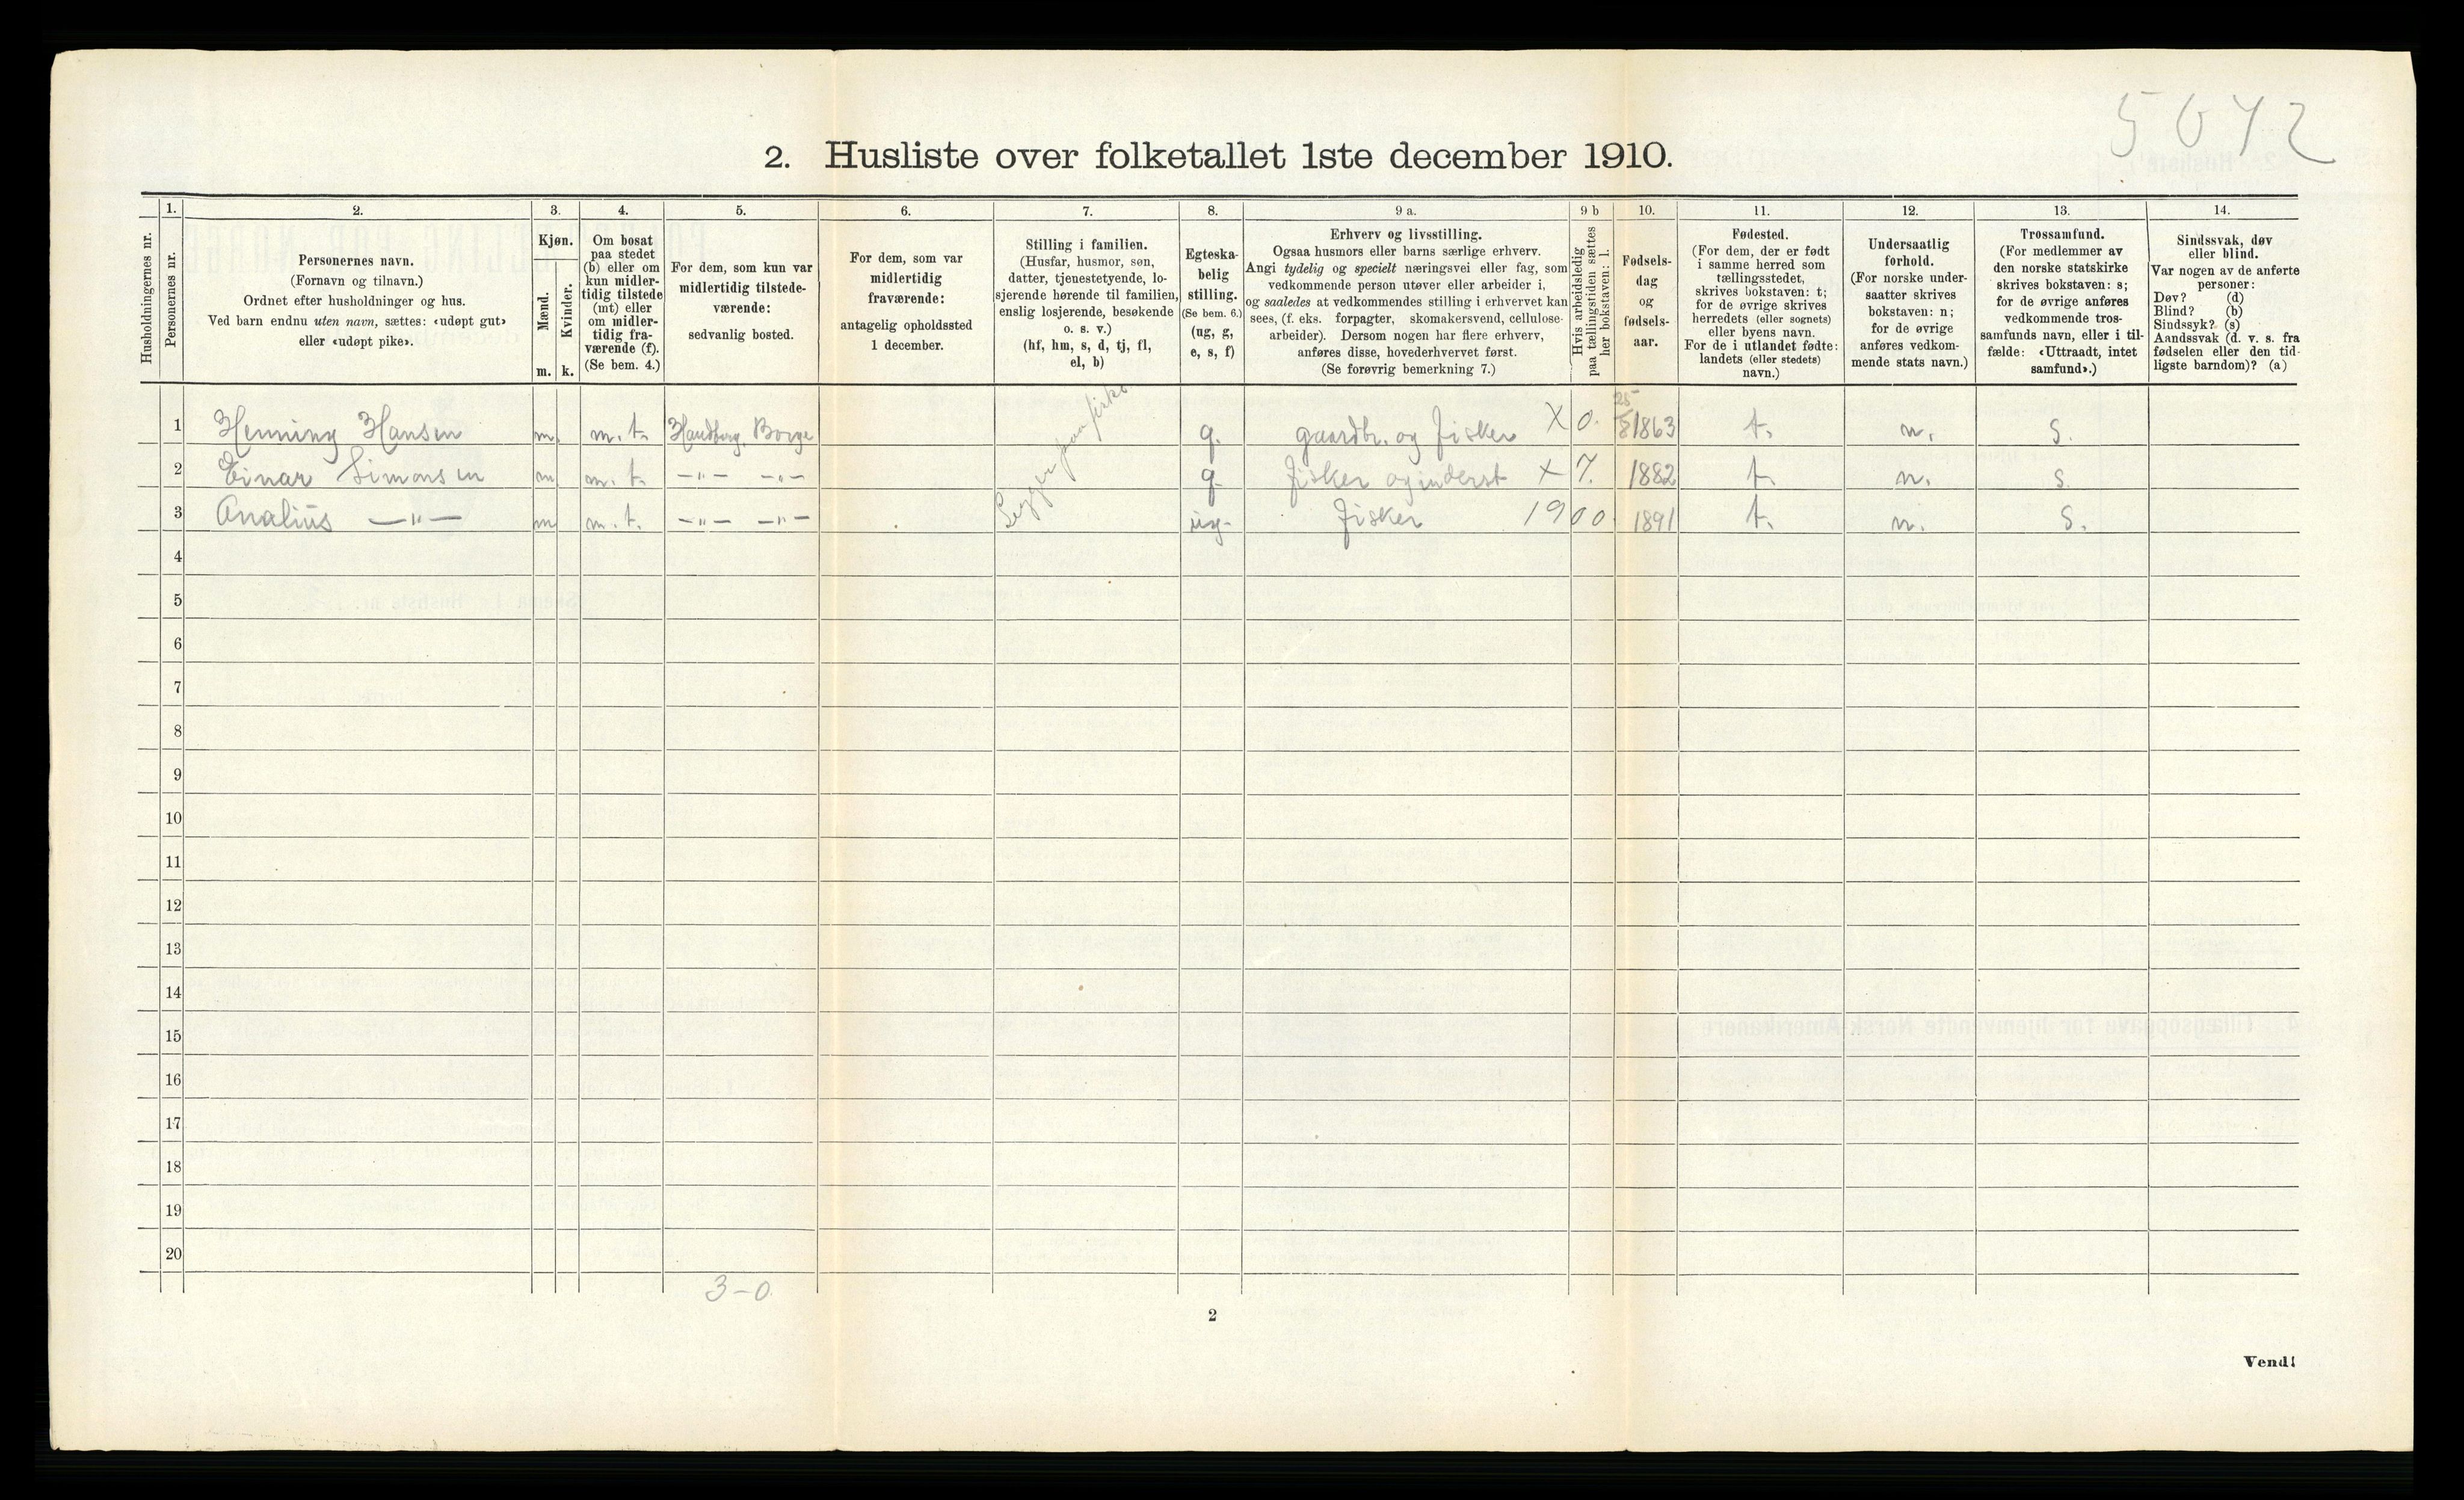 5672
2. Husliste over folketallet 1ste december 1910.
Husholdningernes nr.
1.
Personernes nr.
2.
Personernes navn.
(Fornavn og tilnavn.)
Ordnet efter husholdninger og hus.
Ved barn endnu uten navn, sættes: «udøpt gut»
eller «udøpt pike».
3.
Kjøn.
Mænd.
Kvinder.
m. k.
4.
Om bosat
paa stedet
(b) eller om
kun midler-
tidig tilstede
(mt) eller
om midler-
tidig fra-
værende (f).
(Se bem. 4.)
5.
For dem, som kun var
midlertidig tilstede-
værende:
sedvanlig bosted.
6.
For dem, som var
midlertidig
fraværende:
antagelig opholdssted
1 december.
7.
Stilling i familien.
(Husfar, husmor, søn,
datter, tjenestetyende, lo-
sjerende hørende til familien,
enslig losjerende, besøkende
o. s. v.)
(hf, hm, s, d, tj, fl,
el, b)
8.
Egteska-
belig
stilling.
(Se bem. 6.)
(ug, g,
e, s, f)
9 a.
Erhverv og livsstilling.
Ogsaa husmors eller barns særlige erhverv.
Angi tydelig og specielt næringsvei eller fag, som
vedkommende person utøver eller arbeider i,
og saaledes at vedkommendes stilling i erhvervet kan
sees, (f. eks. forpagter, skomakersvend, cellulose-
arbeider). Dersom nogen har flere erhverv,
anføres disse, hovederhvervet først.
(Se forøvrig bemerkning 7.)
9 b
Hvis arbeidsledig
paa tællingstiden sættes
her bokstaven: l.
10.
Fødsels-
dag
og
fødsels-
aar.
11.
Fødested.
(For dem, der er født
i samme herred som
tællingsstedet,
skrives bokstaven: t;
for de øvrige skrives
herredets (eller sognets)
eller byens navn.
For de i utlandet fødte:
landets (eller stedets)
navn.)
12.
Undersaatlig
forhold.
(For norske under-
saatter skrives
bokstaven: n;
for de øvrige
anføres vedkom-
mende stats navn.)
13.
Trossamfund.
(For medlemmer av
den norske statskirke
skrives bokstaven: s;
for de øvrige anføres
vedkommende tros-
samfunds navn, eller i til-
fælde: «Uttraadt, intet
samfund».)
14.
Sindssvak, døv
eller blind.
Var nogen av de anførte
personer:
Døv? (d)
Blind? (b)
Sindssyk? (s)
Aandssvak (d. v. s. fra
fødselen eller den tid-
ligste barndom)? (a)
1 Henning Hansen m. m. t. Borge g. gaardbr. og fisker X 0. 25/8 1863 t. n. s.
2 Einar Simonsen m m. t. —"— —"— g. fisker og inderst X 7. 1882 t. n. s.
3 Analius —"— m m. t. —"— —"— ug. fisker 1900. 1891 t. n. s.
Ligger paa fiske
4
5
6
7
8
9
10
11
12
13
14
15
16
17
18
19
20
3-0.
2
Vend!